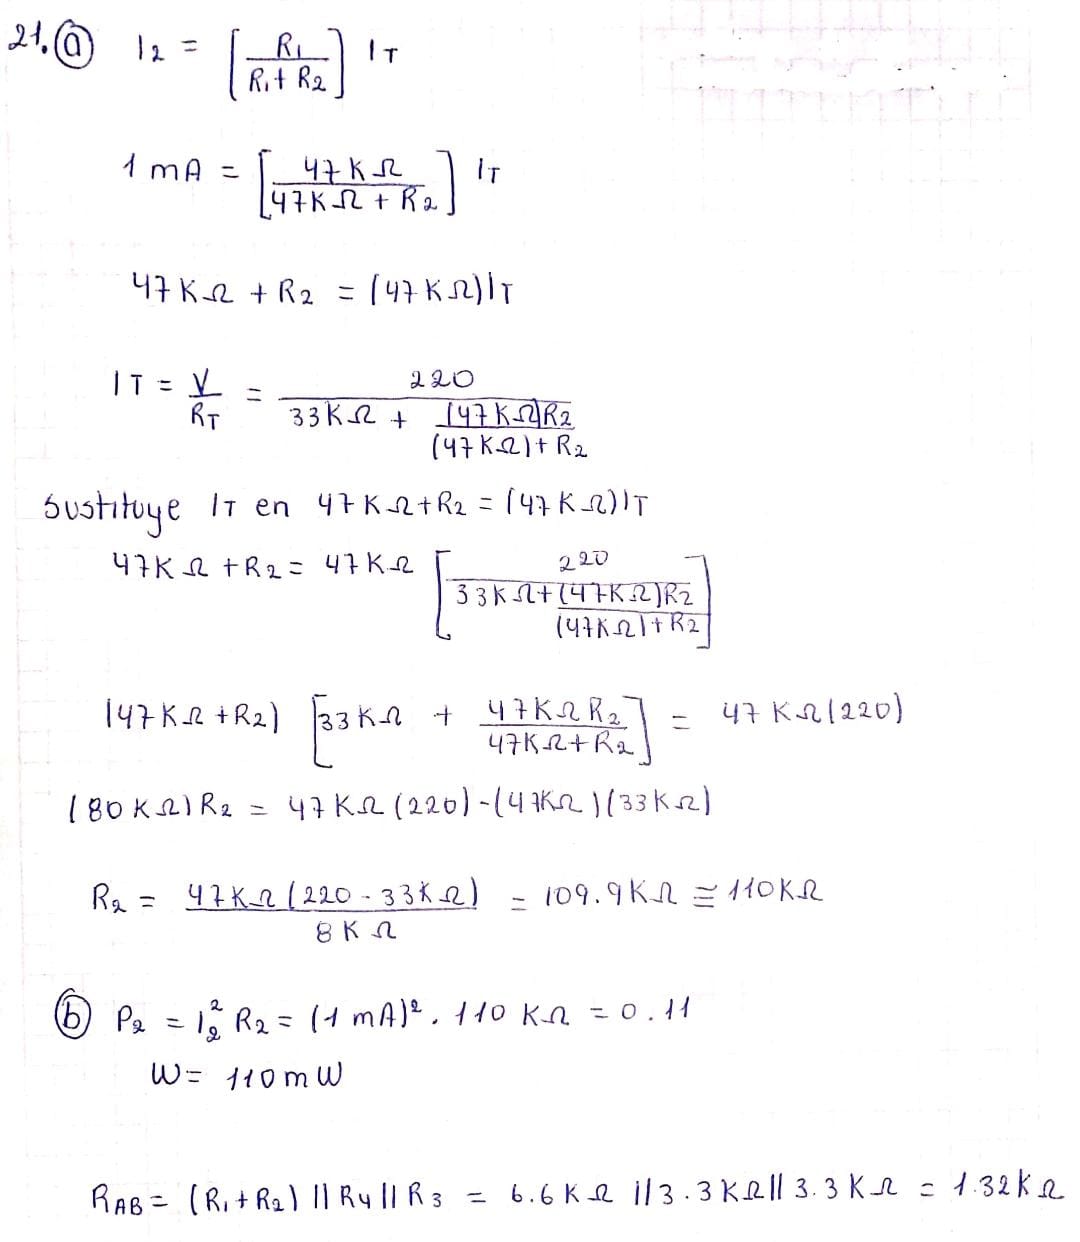 21. ⓐ I₂ = [R₁ / (R₁ + R₂)] IT
1 mA = [47KΩ / (47KΩ + R₂)] IT
47KΩ + R₂ = (47KΩ)IT
IT = V/RT = 220 / (33KΩ + (47KΩ)R₂ / ((47KΩ) + R₂))
Sustituye IT en 47KΩ + R₂ = (47KΩ)IT
47KΩ + R₂ = 47KΩ [220 / (33KΩ + (47KΩ)R₂ / ((47KΩ) + R₂))]
(47KΩ + R₂) [33KΩ + 47KΩ R₂ / (47KΩ + R₂)] = 47KΩ(220)
(80KΩ)R₂ = 47KΩ(220) - (47KΩ)(33KΩ)
R₂ = 47KΩ(220 - 33KΩ) / 8KΩ = 109.9KΩ ≅ 110KΩ
ⓑ P₂ = I₂² R₂ = (1 mA)² . 110 KΩ = 0.11
W = 110 mW
RAB = (R₁ + R₂) || R₄ || R₃ = 6.6KΩ || 3.3KΩ || 3.3KΩ = 1.32KΩ